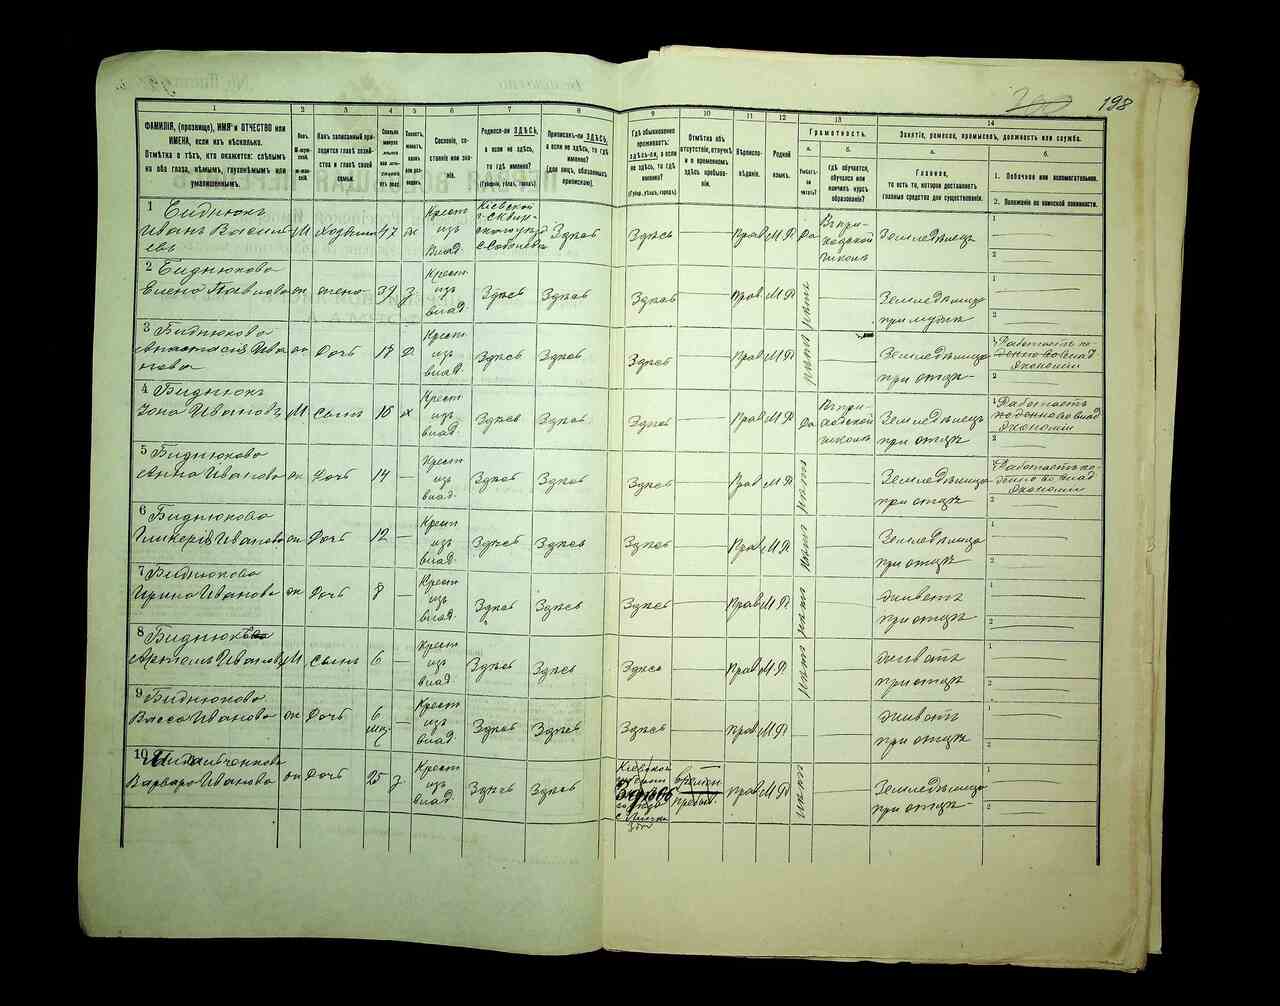 198
1 2 3 4 5 6 7 8 9 10 11 12 13 14
ФАМИЛІЯ, (прозвище), ИМЯ и ОТЧЕСТВО или
ИМЕНА, если ихъ нѣсколько.
Отмѣтка о тѣхъ, кто окажется: слѣпымъ
на оба глаза, нѣмымъ, глухонѣмымъ или
умалишеннымъ.
Полъ.
М-мужск.
Какъ записанный при-
ходится главѣ хозяй-
ства и главѣ своей
семьи.
Сколько
минуло
лѣтъ
Сословіе, со-
стояніе или зва-
ніе.
Родился-ли ЗДѢСЬ,
а если не здѣсь,
то гдѣ именно?
(Губернія, уѣздъ, городъ).
Приписанъ-ли ЗДѢСЬ,
а если не здѣсь, то гдѣ
именно?
(для лицъ, обязанныхъ
припискою).
Гдѣ обыкновенно
проживаетъ:
здѣсь-ли, а если
не здѣсь, то гдѣ
именно?
(Губер., уѣздъ, городъ).
Отмѣтка объ
отсутствіи, отлучкѣ
и о временномъ
здѣсь пребыва-
ніи.
Вѣроиспо-
вѣданіе.
Родной
языкъ.
Грамотность.
а.
б.
гдѣ обучается,
обучался или
кончилъ курсъ
образованія?
Занятіе, ремесло, промыселъ, должность или служба.
а.
Главное,
то есть то, которое доставляетъ
главныя средства для существованія.
б.
1. Побочное или вспомогательное.
2. Положеніе по воинской повинности.
1 Биднюкъ
Иванъ Василь-
евъ
М Хозяинъ 47 ж
Крест
изъ
влад.
Кіевской
Здѣсь Здѣсь Прав М.Р. Да
Въ при-
ходской
школѣ
Земледѣлецъ
1
2
2 Биднюкова
Елена Павлова ж жена 39 з
Крест
изъ
влад.
Здѣсь Здѣсь Здѣсь Прав М Р нѣтъ
Земледѣлица
при мужѣ
1
2
3 Биднюкова
Анастасія Ива
нова
ж Дочь
Крест
изъ
влад.
Здѣсь Здѣсь Здѣсь Прав М Р нѣтъ
Земледѣлица
при отцѣ
1 Работаетъ по-
денно во влад
экономіи
2
4 Биднюкъ
Іона Ивановъ М Сынъ 16 х
Крест
изъ
влад.
Здѣсь Здѣсь Здѣсь Прав М Р Да
Въ при-
ходской
школѣ
Земледѣлецъ
при отцѣ
1 Работаетъ
поденно во влад
экономіи
2
5 Биднюкова
Анна Иванова ж Дочь 14 —
Крест
изъ
влад.
Здѣсь Здѣсь Здѣсь Прав М Р нѣтъ
Земледѣлица
при отцѣ
1 Работаетъ по-
денно во влад
экономіи
2
6 Биднюкова
Гликерія Иванова ж Дочь 12 —
Крест
изъ
влад.
Здѣсь Здѣсь Здѣсь Прав М Р нѣтъ
Земледѣлица
при отцѣ
1
2
7 Биднюкова
Ирина Иванова ж Дочь 8 —
Крест
изъ
влад.
Здѣсь Здѣсь Здѣсь Прав М Р. нѣтъ
живетъ
при отцѣ
1
2
8 Биднюк
Артемъ Ивановъ М Сынъ 6 —
Крест
изъ
влад.
Здѣсь Здѣсь Здѣсь Прав М.Р. нѣтъ
живетъ
при отцѣ
1
2
9 Биднюкова
Васса Иванова ж Дочь 6 —
Крест
изъ
влад
Здѣсь Здѣсь Здѣсь Прав М.Р.
живетъ
при отцѣ
1
2
10
Варвара Иванова ж Дочь 25 з
Крест
изъ
влад.
Здѣсь Здѣсь
Кіевской
времен
пребыв.
Прав М Р нѣтъ
Земледѣлица
при отцѣ
1
2